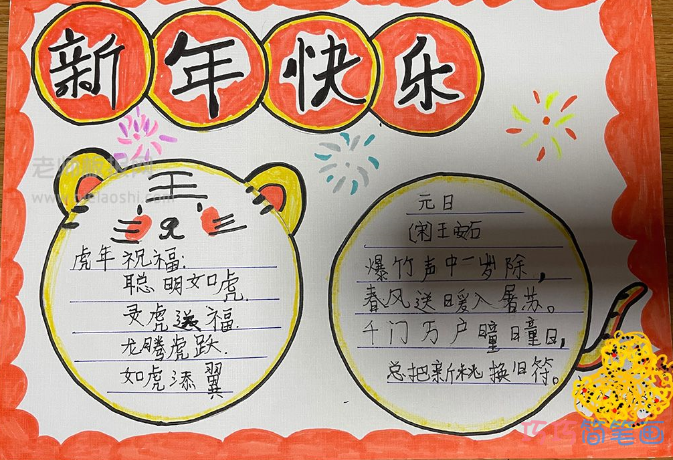 新年快乐
王
虎年祝福:
聪明如虎,
灵虎送福.
龙腾虎跃.
如虎添翼
元日
(宋)王安石
爆竹声中一岁除,
春风送暖入屠苏。
千门万户曈曈日,
总把新桃换旧符。
简笔画